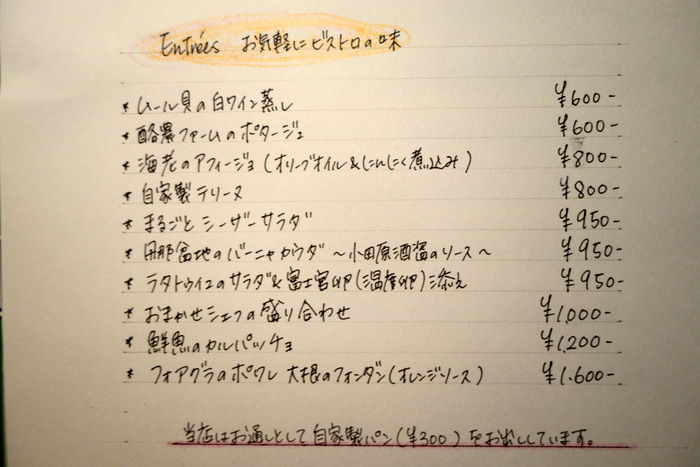 Entrées お気軽にビストロの味
* ムール貝の白ワイン蒸し ¥600-
* 酪農ファームのポタージュ ¥600-
* 海老のアフィージョ(オリーブオイル&にんにく煮込み) ¥800-
* 自家製テリーヌ ¥800-
* まるごとシーザーサラダ ¥950-
* 丹那盆地のバーニャカウダ ～小田原酒盗のソース～ ¥950-
* ラタトゥイユのサラダ&富士宮卵(温度卵)添え ¥950-
* おまかせシェフの盛り合わせ ¥1,000-
* 鮮魚のカルパッチョ ¥1,200-
* フォアグラのポワレ 大根のフォンダン(オレンジソース) ¥1,600-
当店はお通しとして自家製パン(¥300)をお出ししています。